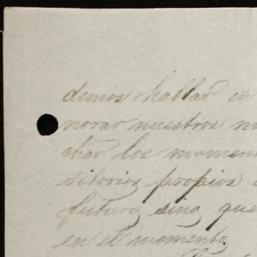 demos hallar e
norar nuestros m
char los momen
sitorios propios
futuro sino que
en el momento